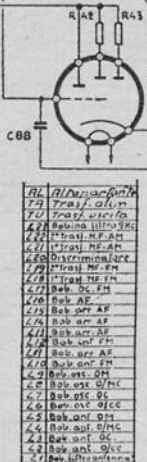 R 42 R43
C88
AL Altoparlante
TA Trasf. alim
TU Trasf. uscita
L23 Bobina filtro 9KC
L22 2°Trasf. MF-AM
L21 1°Trasf. MF-AM
L20 Discriminatore
L19 2°Trasf. MF-FM
L18 1°Trasf. MF FM
L17 Bob. OC. FM
L16 Bob AF
L15 Bob acc AF
L14 Bob acc AF
L13 Bob acc. AF
L12 Bob ant FM
L11 Bob. acc AF
L10 Bob. ant FM
L9 Bob. osc. OM
L8 Bob. osc O/MC
L7 Bob. osc OC
L6 Bob. osc O/CC
L5 Bob. ant OM
L4 Bob. ant. O/MC
L3 Bob ant. OC
L2 Bob. ant. O/CC
L1 Bob. filtro antenna